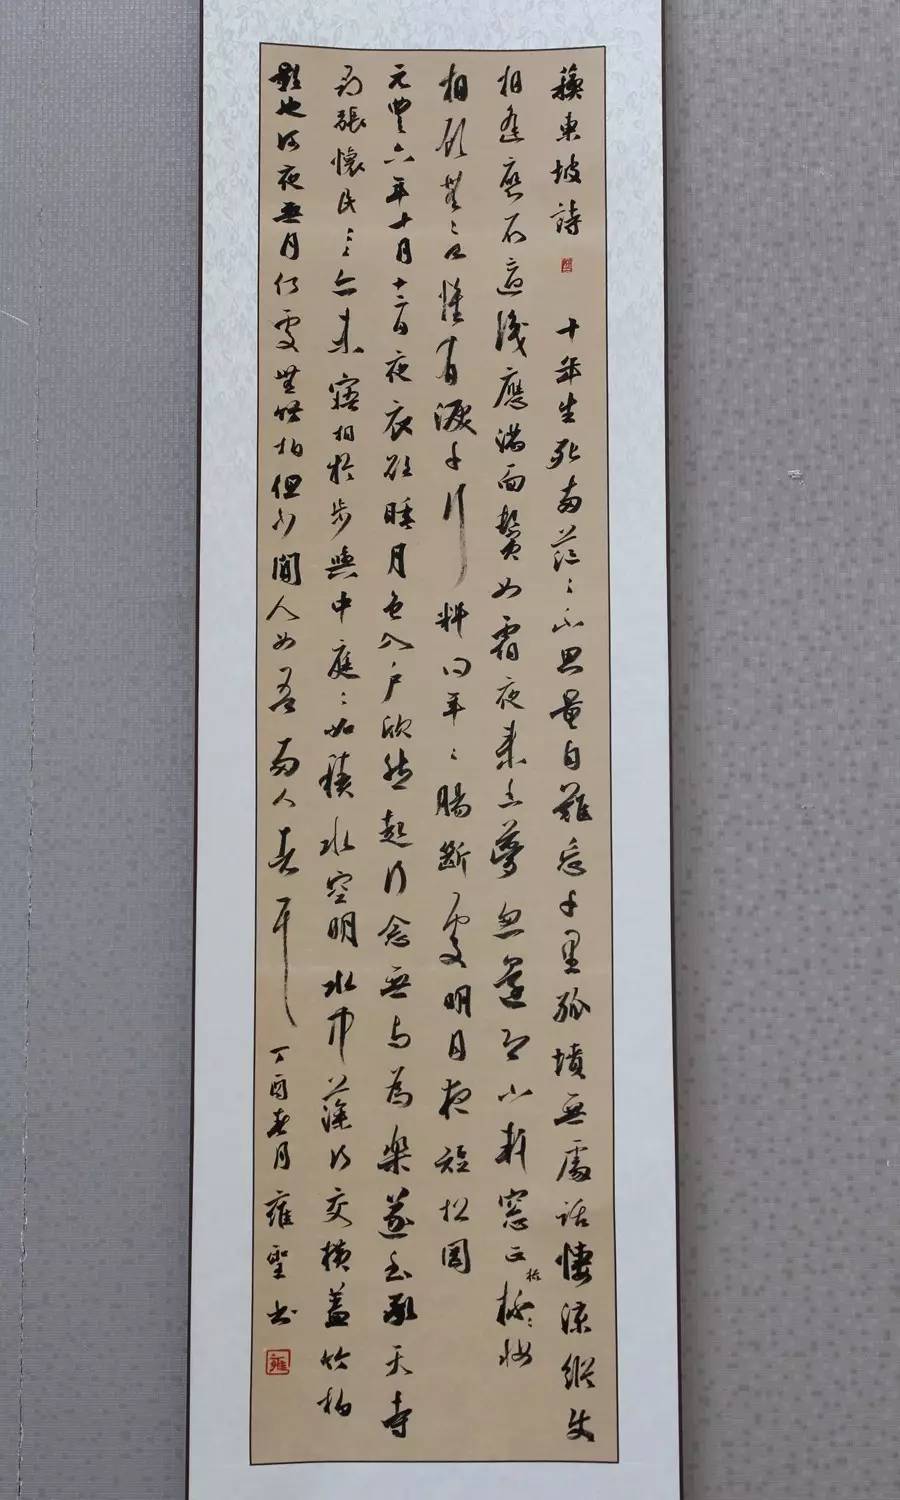 蘇東坡詩 十年生死兩茫〻不思量自難忘千里孤墳無處話悽涼縱使
相逢應不識應滿面鬢如霜夜來幽夢忽還鄉小軒窗正梳妝
相顧無〻言惟有淚千行料得年〻腸斷處明月夜短松岡
元豐六年十月十二日夜衣欲睡月色入户欣然起行念無与為樂遂至承天寺
尋張懷民〻亦未寢相於步與中庭〻如積水空明水中藻荇交橫蓋竹柏
影也何夜無月何處無竹柏但少閒人如吾兩人者耳 丁酉春月 雍聖书
雍